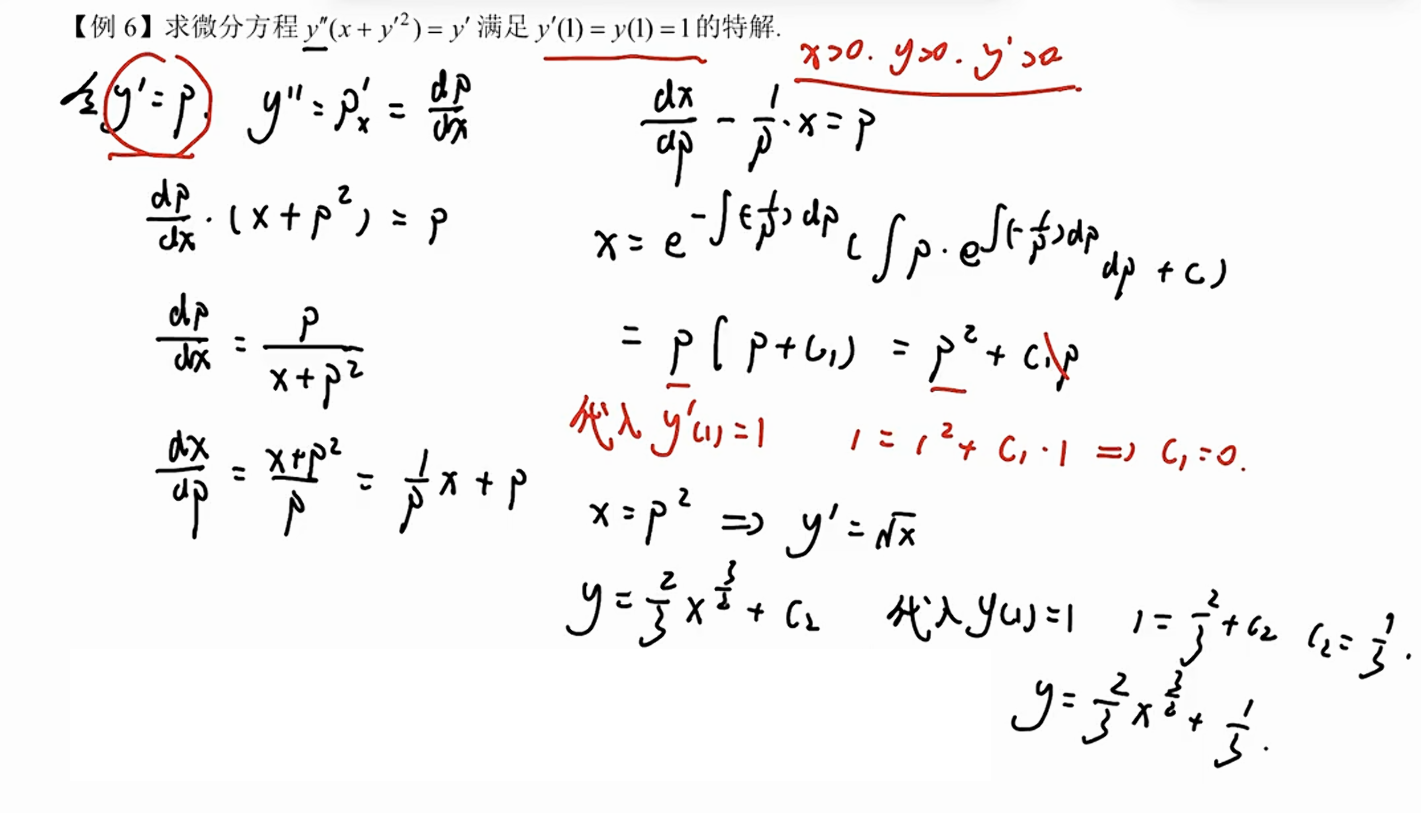 【例 6】求微分方程 y″(x + y′²) = y′ 满足 y′(1) = y(1) = 1 的特解.
x>0. y>0. y′>0
令 y′=p. y″=p′ₓ = dp/dx
dp/dx · (x+p²) = p
dp/dx = p/(x+p²)
dx/dp = (x+p²)/p = 1/p x + p
dx/dp - 1/p · x = p
x = e^(-∫(-1/p)dp) (∫p·e^(∫(-1/p)dp) dp + C)
= p [p+C₁) = p² + C₁p
代入 y′(1)=1 1 = 1² + C₁·1 ⇒ C₁=0.
x=p² ⇒ y′=√x
y = 2/3 x^(3/2) + C₂ 代入 y(1)=1 1 = 2/3 + C₂ C₂ = 1/3.
y = 2/3 x^(3/2) + 1/3.